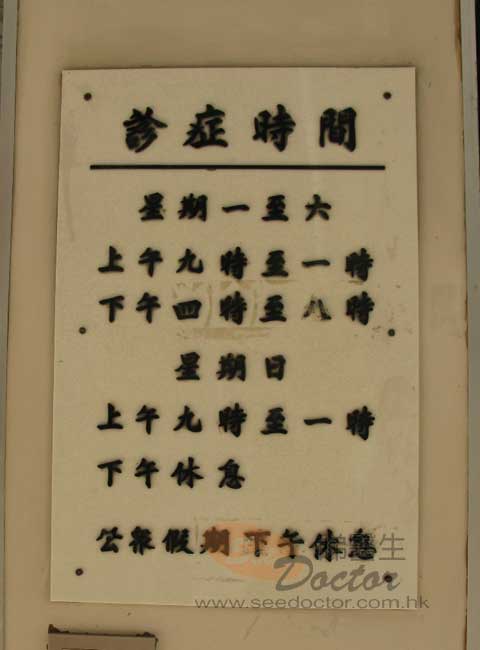 診症時間
星期一至六
上午九時至一時
下午四時至八時
星期日
上午九時至一時
下午休息
公眾假期下午休息
Doctor
www.seedoctor.com.hk